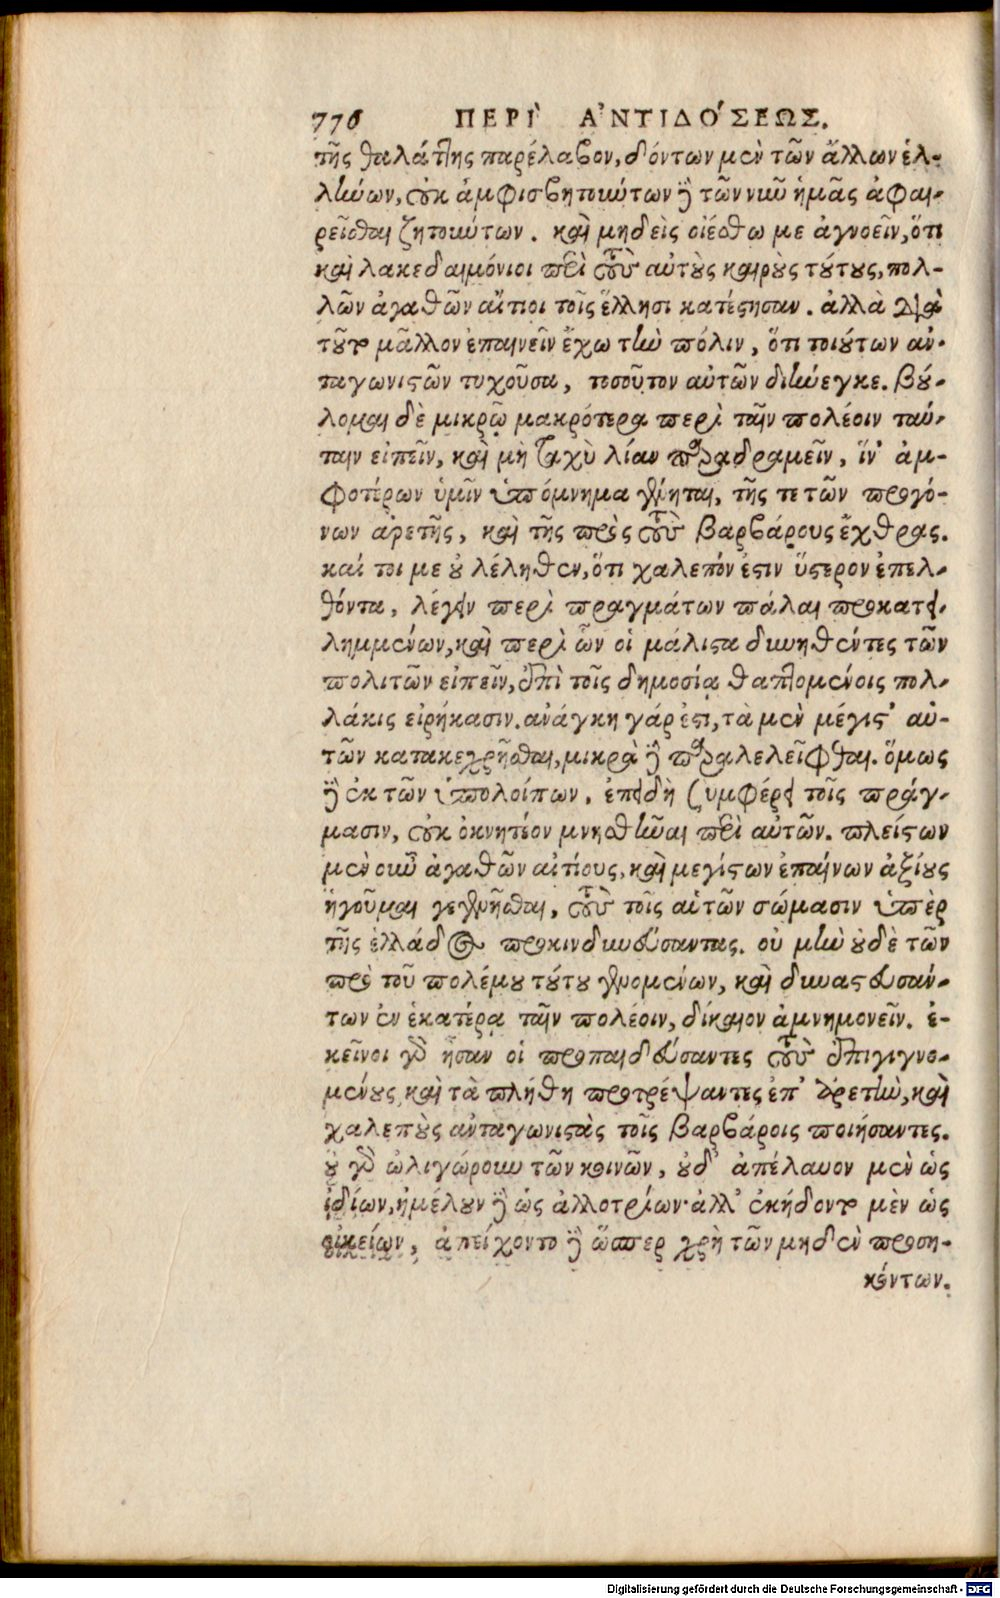 776 ΠΕΡΙ` Α᾿ΝΤΙΔΟ´ΣΕΩΣ.
τῆς θαλάττης παρέλαβον, δόντων μὲν τῶν ἄλλων ἑλ-
λήνων, οὐκ ἀμφισβητούντων δὲ τῶν νῦν ἡμᾶς ἀφαι-
ρεῖσθαι ζητούντων. καὶ μηδεὶς οἰέσθω με ἀγνοεῖν, ὅτι
καὶ λακεδαιμόνιοι περὶ τοὺς αὐτοὺς καιροὺς τούτους, πολ-
λῶν ἀγαθῶν αἴτιοι τοῖς ἕλλησι κατέστησαν. ἀλλὰ διὰ
τοῦτο μᾶλλον ἐπαινεῖν ἔχω τὴν πόλιν, ὅτι τοιούτων ἀν-
ταγωνιστῶν τυχοῦσα, τοσοῦτον αὐτῶν διήνεγκε. βού-
λομαι δὲ μικρῷ μακρότερα περὶ ταῖν πολέοιν ταύ-
ταιν εἰπεῖν, καὶ μὴ ταχὺ λίαν παραδραμεῖν, ἵν' ἀμ-
φοτέρων ὑμῖν ὑπόμνημα γένηται, τῆς τε τῶν προγό-
νων ἀρετῆς, καὶ τῆς πρὸς τοὺς βαρβάρους ἔχθρας.
καί τοι με οὐ λέληθεν, ὅτι χαλεπόν ἐστιν ὕστερον ἐπελ-
θόντα, λέγειν περὶ πραγμάτων πάλαι προκατει-
λημμένων, καὶ περὶ ὧν οἱ μάλιστα δυνηθέντες τῶν
πολιτῶν εἰπεῖν, ἐπὶ τοῖς δημοσίᾳ θαπτομένοις πολ-
λάκις εἰρήκασιν. ἀνάγκη γάρ ἐστι, τὰ μὲν μέγιστ' αὐ-
τῶν κατακεχρῆσθαι, μικρὰ δὲ παραλελεῖφθαι. ὅμως
δὲ ἐκ τῶν ὑπολοίπων, ἐπειδὴ συμφέρει τοῖς πράγ-
μασιν, οὐκ ὀκνητέον μνησθῆναι περὶ αὐτῶν. πλείστων
μὲν οὖν ἀγαθῶν αἰτίους, καὶ μεγίστων ἐπαίνων ἀξίους
ἡγοῦμαι γεγενῆσθαι, τοὺς τοῖς αὑτῶν σώμασιν ὑπὲρ
τῆς ἑλλάδος προκινδυνεύσαντας. οὐ μὴν οὐδὲ τῶν
πρὸ τοῦ πολέμου τούτου γενομένων, καὶ δυναστευσάν-
των ἐν ἑκατέρᾳ ταῖν πολέοιν, δίκαιον ἀμνημονεῖν. ἐ-
κεῖνοι γὰρ ἦσαν οἱ προπαιδεύσαντες τοὺς ἐπιγιγνο-
μένους, καὶ τὰ πλήθη προτρέψαντες ἐπ' ἀρετὴν, καὶ
χαλεποὺς ἀνταγωνιστὰς τοῖς βαρβάροις ποιήσαντες.
οὐ γὰρ ὠλιγώρουν τῶν κοινῶν, οὐδ' ἀπέλαυον μὲν ὡς
ἰδίων, ἠμέλουν δὲ ὡς ἀλλοτρίων· ἀλλ' ἐκήδοντο μὲν ὡς
οἰκείων, ἀπείχοντο δὲ ὥσπερ χρὴ τῶν μηδὲν προση-
κόντων.
Digitalisierung gefördert durch die Deutsche Forschungsgemeinschaft - DFG